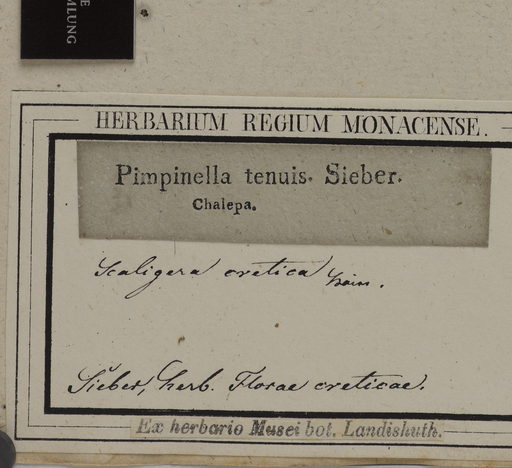 MLUNG
HERBARIUM REGIUM MONACENSE.
Pimpinella tenuis. Sieber.
Chalepa.
Scaligera cretica
Sieber, herb. Florae creticae.
Ex herbario Musei bot. Landishuth.